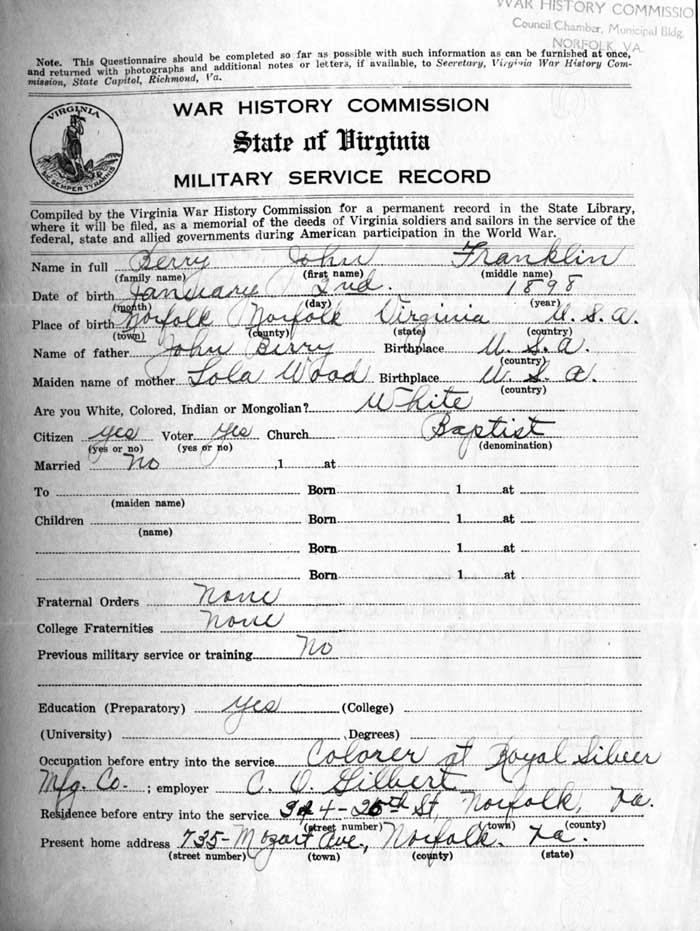 WAR HISTORY COMMISSIO
Council Chamber, Municipal Bldg.
NORFOLK VA.
Note. This Questionnaire should be completed so far as possible with such information as can be furnished at once,
and returned with photographs and additional notes or letters, if available, to Secretary, Virginia War History Com-
mission, State Capitol, Richmond, Va.
VIRGINIA
SIC SEMPER TYRANNIS
WAR HISTORY COMMISSION
State of Virginia
MILITARY SERVICE RECORD
Compiled by the Virginia War History Commission for a permanent record in the State Library,
where it will be filed, as a memorial of the deeds of Virginia soldiers and sailors in the service of the
federal, state and allied governments during American participation in the World War.
Name in full Berry John Franklin
(family name) (first name) (middle name)
Date of birth January 2nd. 1898
(month) (day) (year)
Place of birth Norfolk Norfolk Virginia U. S. A.
(town) (county) (state) (country)
Name of father John Berry Birthplace U. S. A.
(country)
Maiden name of mother Lola Wood Birthplace U. S. A.
(country)
Are you White, Colored, Indian or Mongolian? White
Citizen yes Voter yes Church Baptist
(yes or no) (yes or no) (denomination)
Married No , 1 at
To Born 1 at
(maiden name)
Children Born 1 at
(name)
Born 1 at
Born 1 at
Fraternal Orders None
College Fraternities None
Previous military service or training No
Education (Preparatory) yes (College)
(University) (Degrees)
Occupation before entry into the service Colorer at Royal Silver
Mfg. Co. ; employer C. O. Gilbert
Residence before entry into the service 26th St, Norfolk, Va.
(street number) (town) (county)
Present home address 735- Mozart Ave, Norfolk. Va.
(street number) (town) (county) (state)